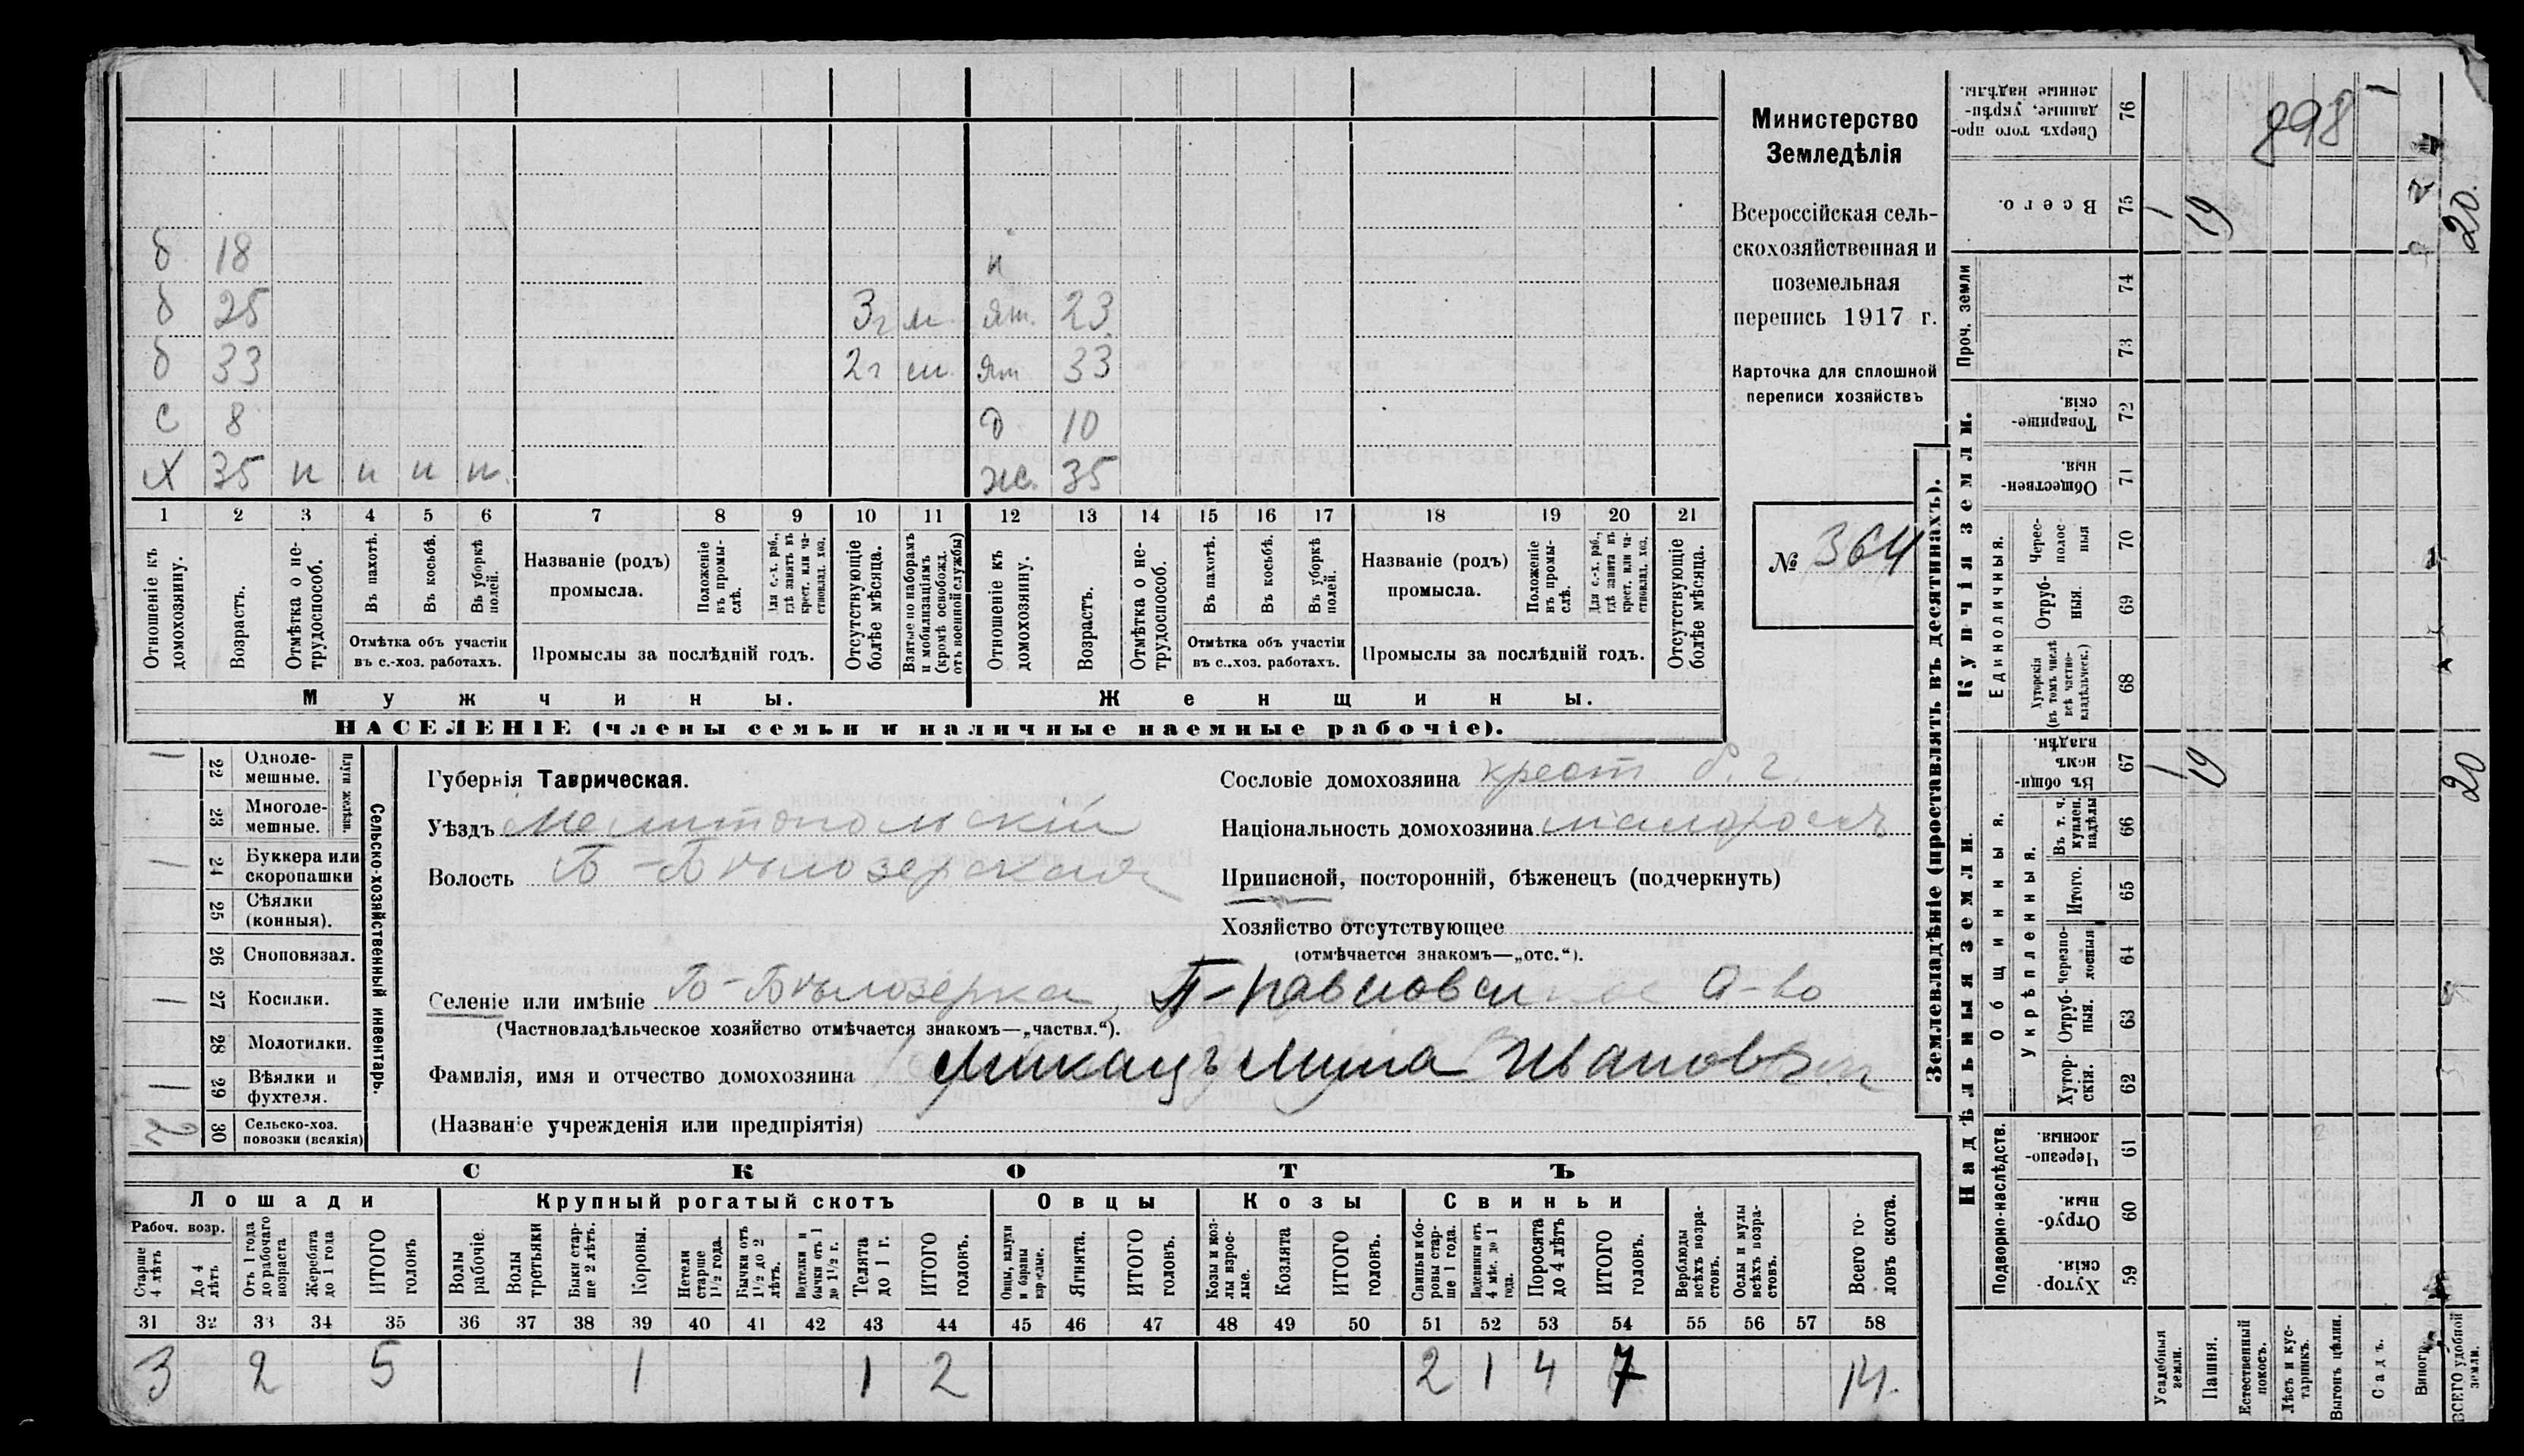 б 18 и
б 25 3г м ят. 23
б 33 2г м ят 33
с 8 д 10
х 35 и и и и ж. 35
1 2 3 4 5 6 7 8 9 10 11 12 13 14 15 16 17 18 19 20 21
Отношеніе къ домохозяину.
Возрастъ.
Отмѣтка о не-трудоспособ.
Въ пахотѣ.
Въ косьбѣ.
Въ уборкѣ полей.
Отмѣтка объ участіи
въ с.-хоз. работахъ.
Названіе (родъ)
промысла.
Положеніе въ промы-слѣ.
Для с.-х. раб., гдѣ занятъ въ крест. или ча-стновлад. хоз.
Промыслы за послѣдній годъ.
Отсутствующіе болѣе мѣсяца.
Взятые по наборамъ и мобилизаціямъ (кромѣ освобожд. отъ военной службы)
Отношеніе къ домохозяину.
Возрастъ.
Отмѣтка о не-трудоспособ.
Въ пахотѣ.
Въ косьбѣ.
Въ уборкѣ полей.
Отмѣтка объ участіи
въ с.-хоз. работахъ.
Названіе (родъ)
промысла.
Положеніе въ промы-слѣ.
Для с.-х. раб., гдѣ занята въ крест. или ча-стновлад. хоз.
Промыслы за послѣдній годъ.
Отсутствующіе болѣе мѣсяца.
Мужчины.
Женщины.
НАСЕЛЕНІЕ (члены семьи и наличные наемные рабочіе).
Министерство
Земледѣлія
Всероссійская сель-
скохозяйственная и
поземельная
перепись 1917 г.
Карточка для сплошной
переписи хозяйствъ
№ 364
Сельско-хозяйственный инвентарь.
Плуги желѣзн.
1 22 Одноле-мешные.
23 Многоле-мешные.
1 24 Буккера или скоропашки
25 Сѣялки (конныя).
26 Сноповязал.
1 27 Косилки.
28 Молотилки.
1 29 Вѣялки и фухтеля.
2 30 Сельско-хоз. повозки (всякія)
Губернія Таврическая.
Уѣздъ Мелитопольскій
Волость Б-Бѣлозерская
Селеніе или имѣніе Б-Бѣлозерка, П-Павловск О-во
(Частновладѣльческое хозяйство отмѣчается знакомъ—„частвл.“).
Фамилія, имя и отчество домохозяина Микацъ Мина Иванов
(Названіе учрежденія или предпріятія)
Сословіе домохозяина крест б. г.
Національность домохозяина малороссъ
Приписной, посторонній, бѣженецъ (подчеркнуть)
Хозяйство отсутствующее
(отмѣчается знакомъ—„отс.“).
СКОТЪ
Лошади
Крупный рогатый скотъ
Овцы
Козы
Свиньи
Рабоч. возр.
Старше 4 лѣтъ
До 4 лѣтъ
Отъ 1 года до рабочаго возраста
Жеребята до 1 года
ИТОГО головъ
Волы рабочіе.
Волы третьяки
Быки стар-ше 2 лѣтъ.
Коровы.
Нетели старше 1½ года.
Бычки отъ 1½ до 2 лѣтъ.
Подтелки и бычки отъ 1 до 1½ г.
Телята до 1 г.
ИТОГО головъ.
Овцы, валухи и бараны взрослые.
Ягнята.
ИТОГО головъ.
Козы и коз-лы взрос-лые.
Козлята
ИТОГО головъ.
Свиньи и бо-ровы стар-ше 1 года.
Подсвинки отъ 4 мѣс. до 1 года.
Поросята до 4 лѣтъ
ИТОГО головъ.
Верблюды всѣхъ возра-стовъ.
Ослы и мулы всѣхъ возра-стовъ.
Всего го-ловъ скота.
31 32 33 34 35 36 37 38 39 40 41 42 43 44 45 46 47 48 49 50 51 52 53 54 55 56 57 58
3 2 5 1 1 2 2 1 4 7 14.
Землевладѣніе (проставлять въ десятинахъ).
Надѣльныя земли.
Купчія земли.
Подворно-наслѣдств.
Общинныя.
Укрѣпленныя.
Единоличныя.
Проч. земли
Хутор-скія. 59
Отруб-ныя. 60
Черезпо-лосныя. 61
Хутор-скія. 62
Отруб-ныя. 63
Черезпо-лосныя 64
Итого. 65
Въ т. ч. куплен. надѣлы 66
Въ общи-номъ владѣн. 67
Хуторскія (въ томъ числѣ всѣ частно-владѣльческ.) 68
Отруб-ныя. 69
Черес-полос-ныя 70
Обществен-ныя. 71
Товарище-скія. 72
73
74
Всего. 75
Сверхъ того про-данные, укрѣп-ленные надѣлы. 76
Усадебныя земли.
Пашня.
Естественный покосъ.
Лѣсъ и кус-тарникъ.
Выгонъ цѣлин.
Садъ.
ВСЕГО удобной земли.
1 19 20
1 19 20.
898